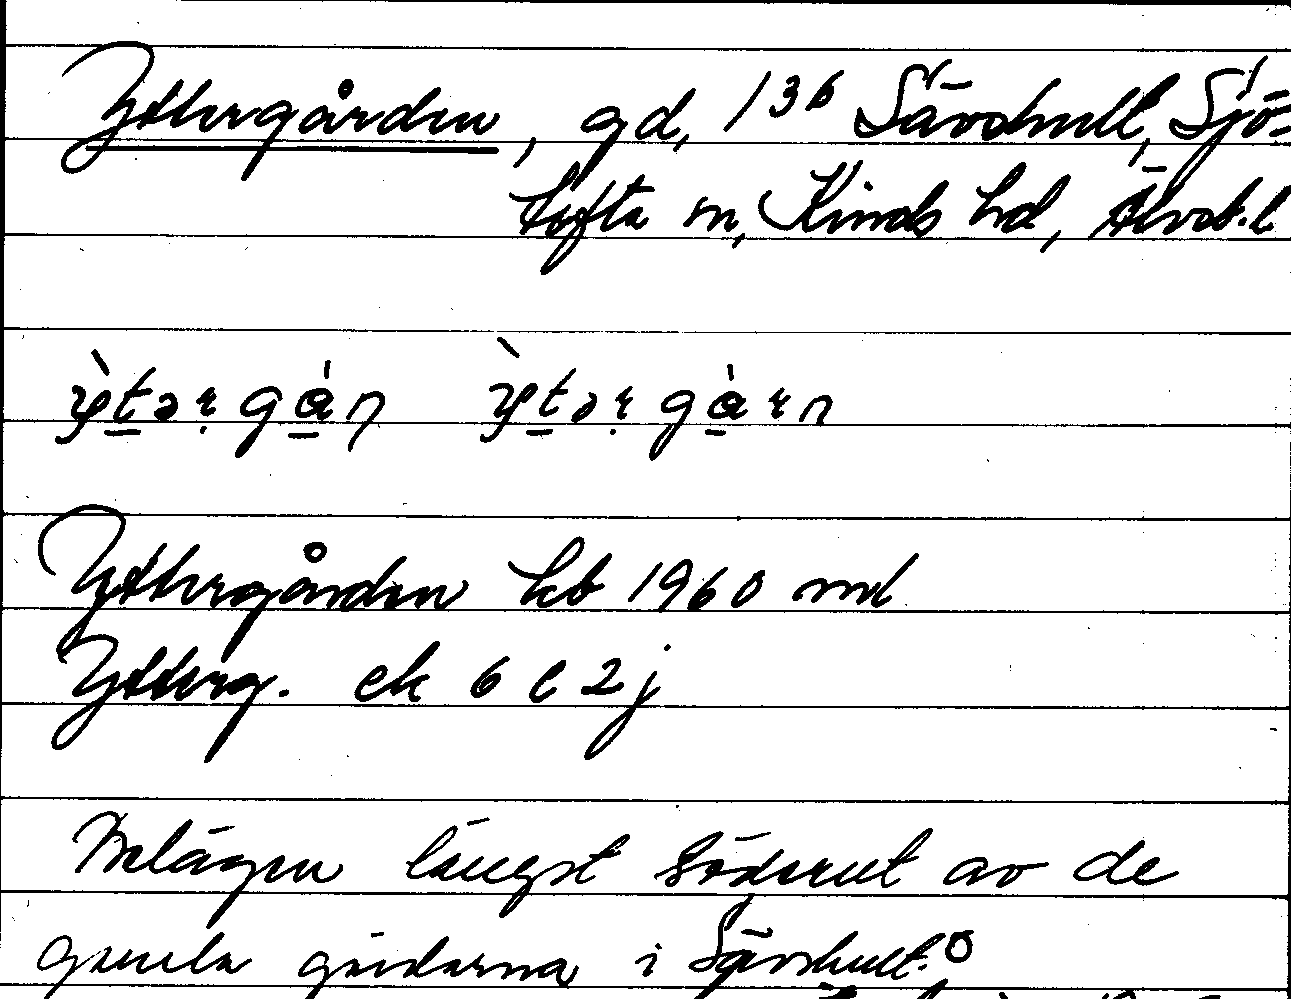 Yttergården, gd, 1³⁶ Sävshult, Sjö-
tofta sn, Kinds hd, Älvsb. l.
Yttergården kb 1960 ml
Ytterg. ek 6 e 2 j
Belägen längst söderut av de
gamla gårdarna i Sävshult.